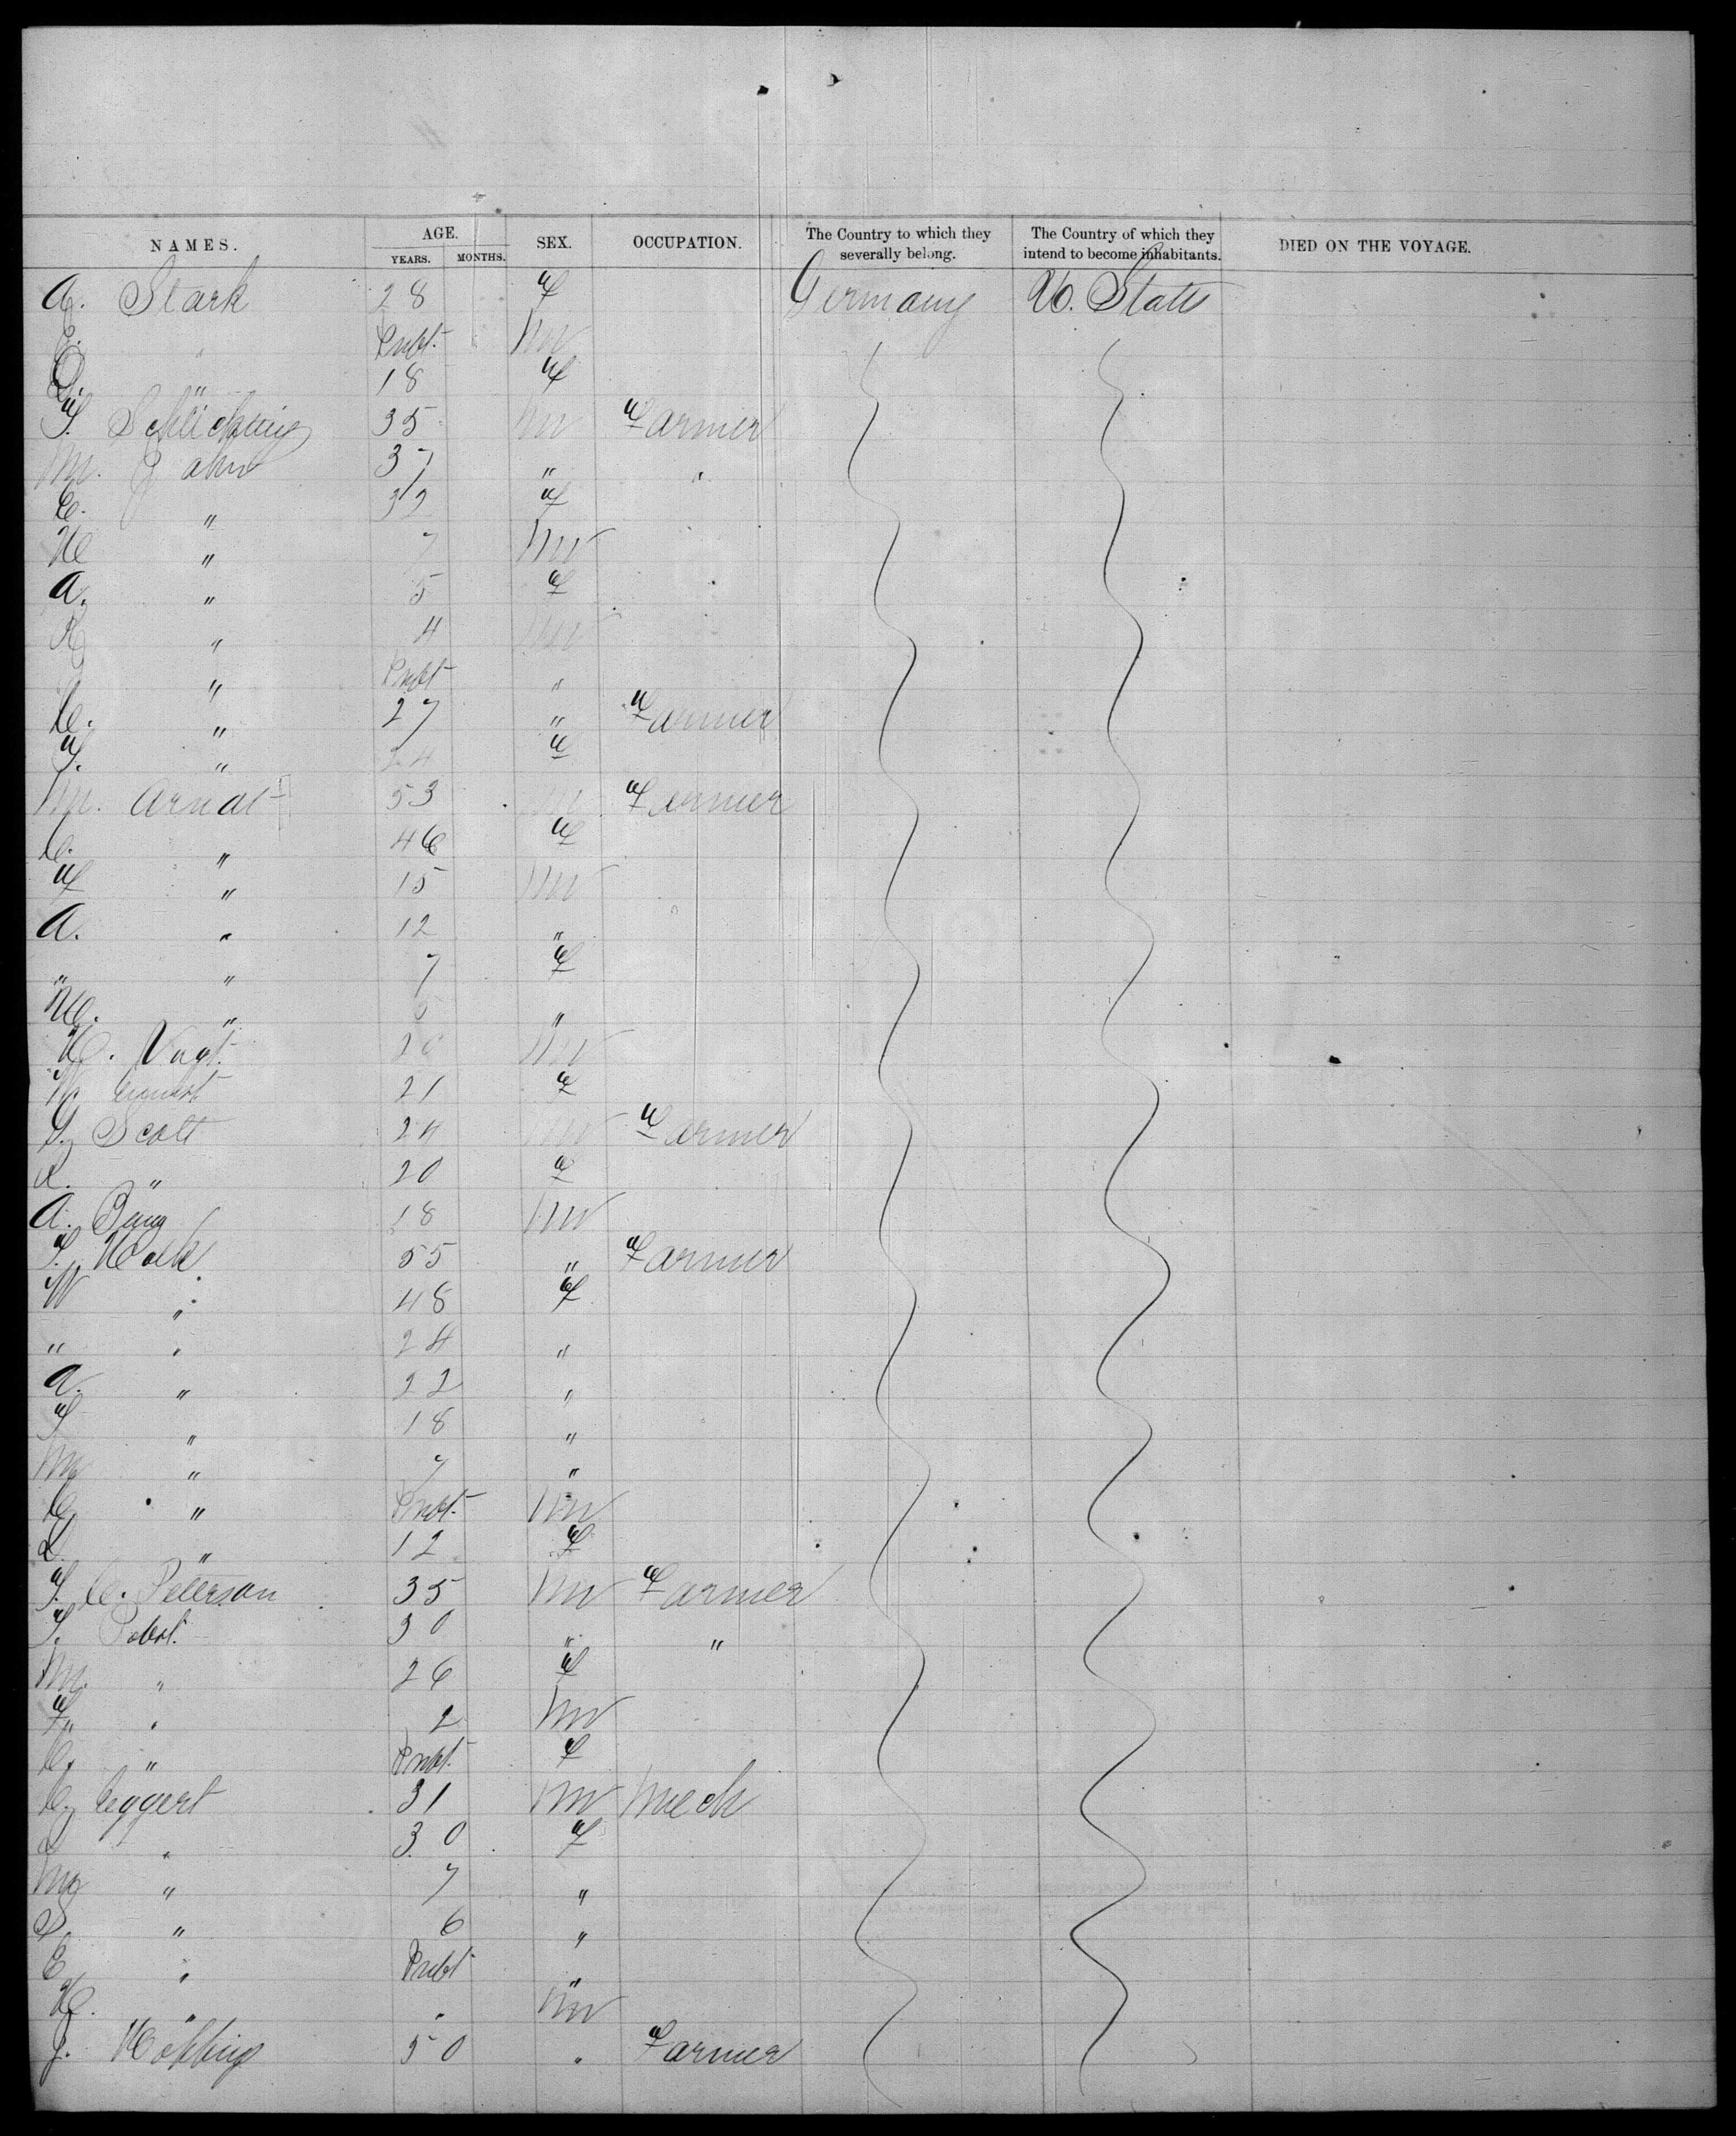 NAMES. AGE. YEARS. MONTHS. SEX. OCCUPATION. The Country to which they severally belong. The Country of which they intend to become inhabitants. DIED ON THE VOYAGE.
A. Stark 28 F Germany U. States
E. " Inft. M
D. " 18 F
F. Schlichting 35 M Farmer
M. Jahn 37 " "
C. " 32 F
H " 7 M
A. " 5 F
R " 4 M
" Inft "
C. " 27 " Farmer
F. " 24 F
M. Arndt 53 M Farmer
C. " 46 F
F " 15 M
A. " 12 "
" " 7 F
H. " "
H. Vogt. 20 M
21 F
G. Scott 24 M Farmer
L. " 20 F
A. 18 M
F. 55 " Farmer
W " 48 F
" " 24 "
A. " 22 "
F " 18 "
M " 7 "
C " Inft. M
L " 12 F
F. C. Peterson 35 M Farmer
F. 30 " "
M. " 26 F
F. " 2 M
C. " Inft. F
C. Eggert 31 M Mech
" 30 F
M " 7 "
S. " 6 "
E " Inft "
H. " " M
J. 50 " Farmer